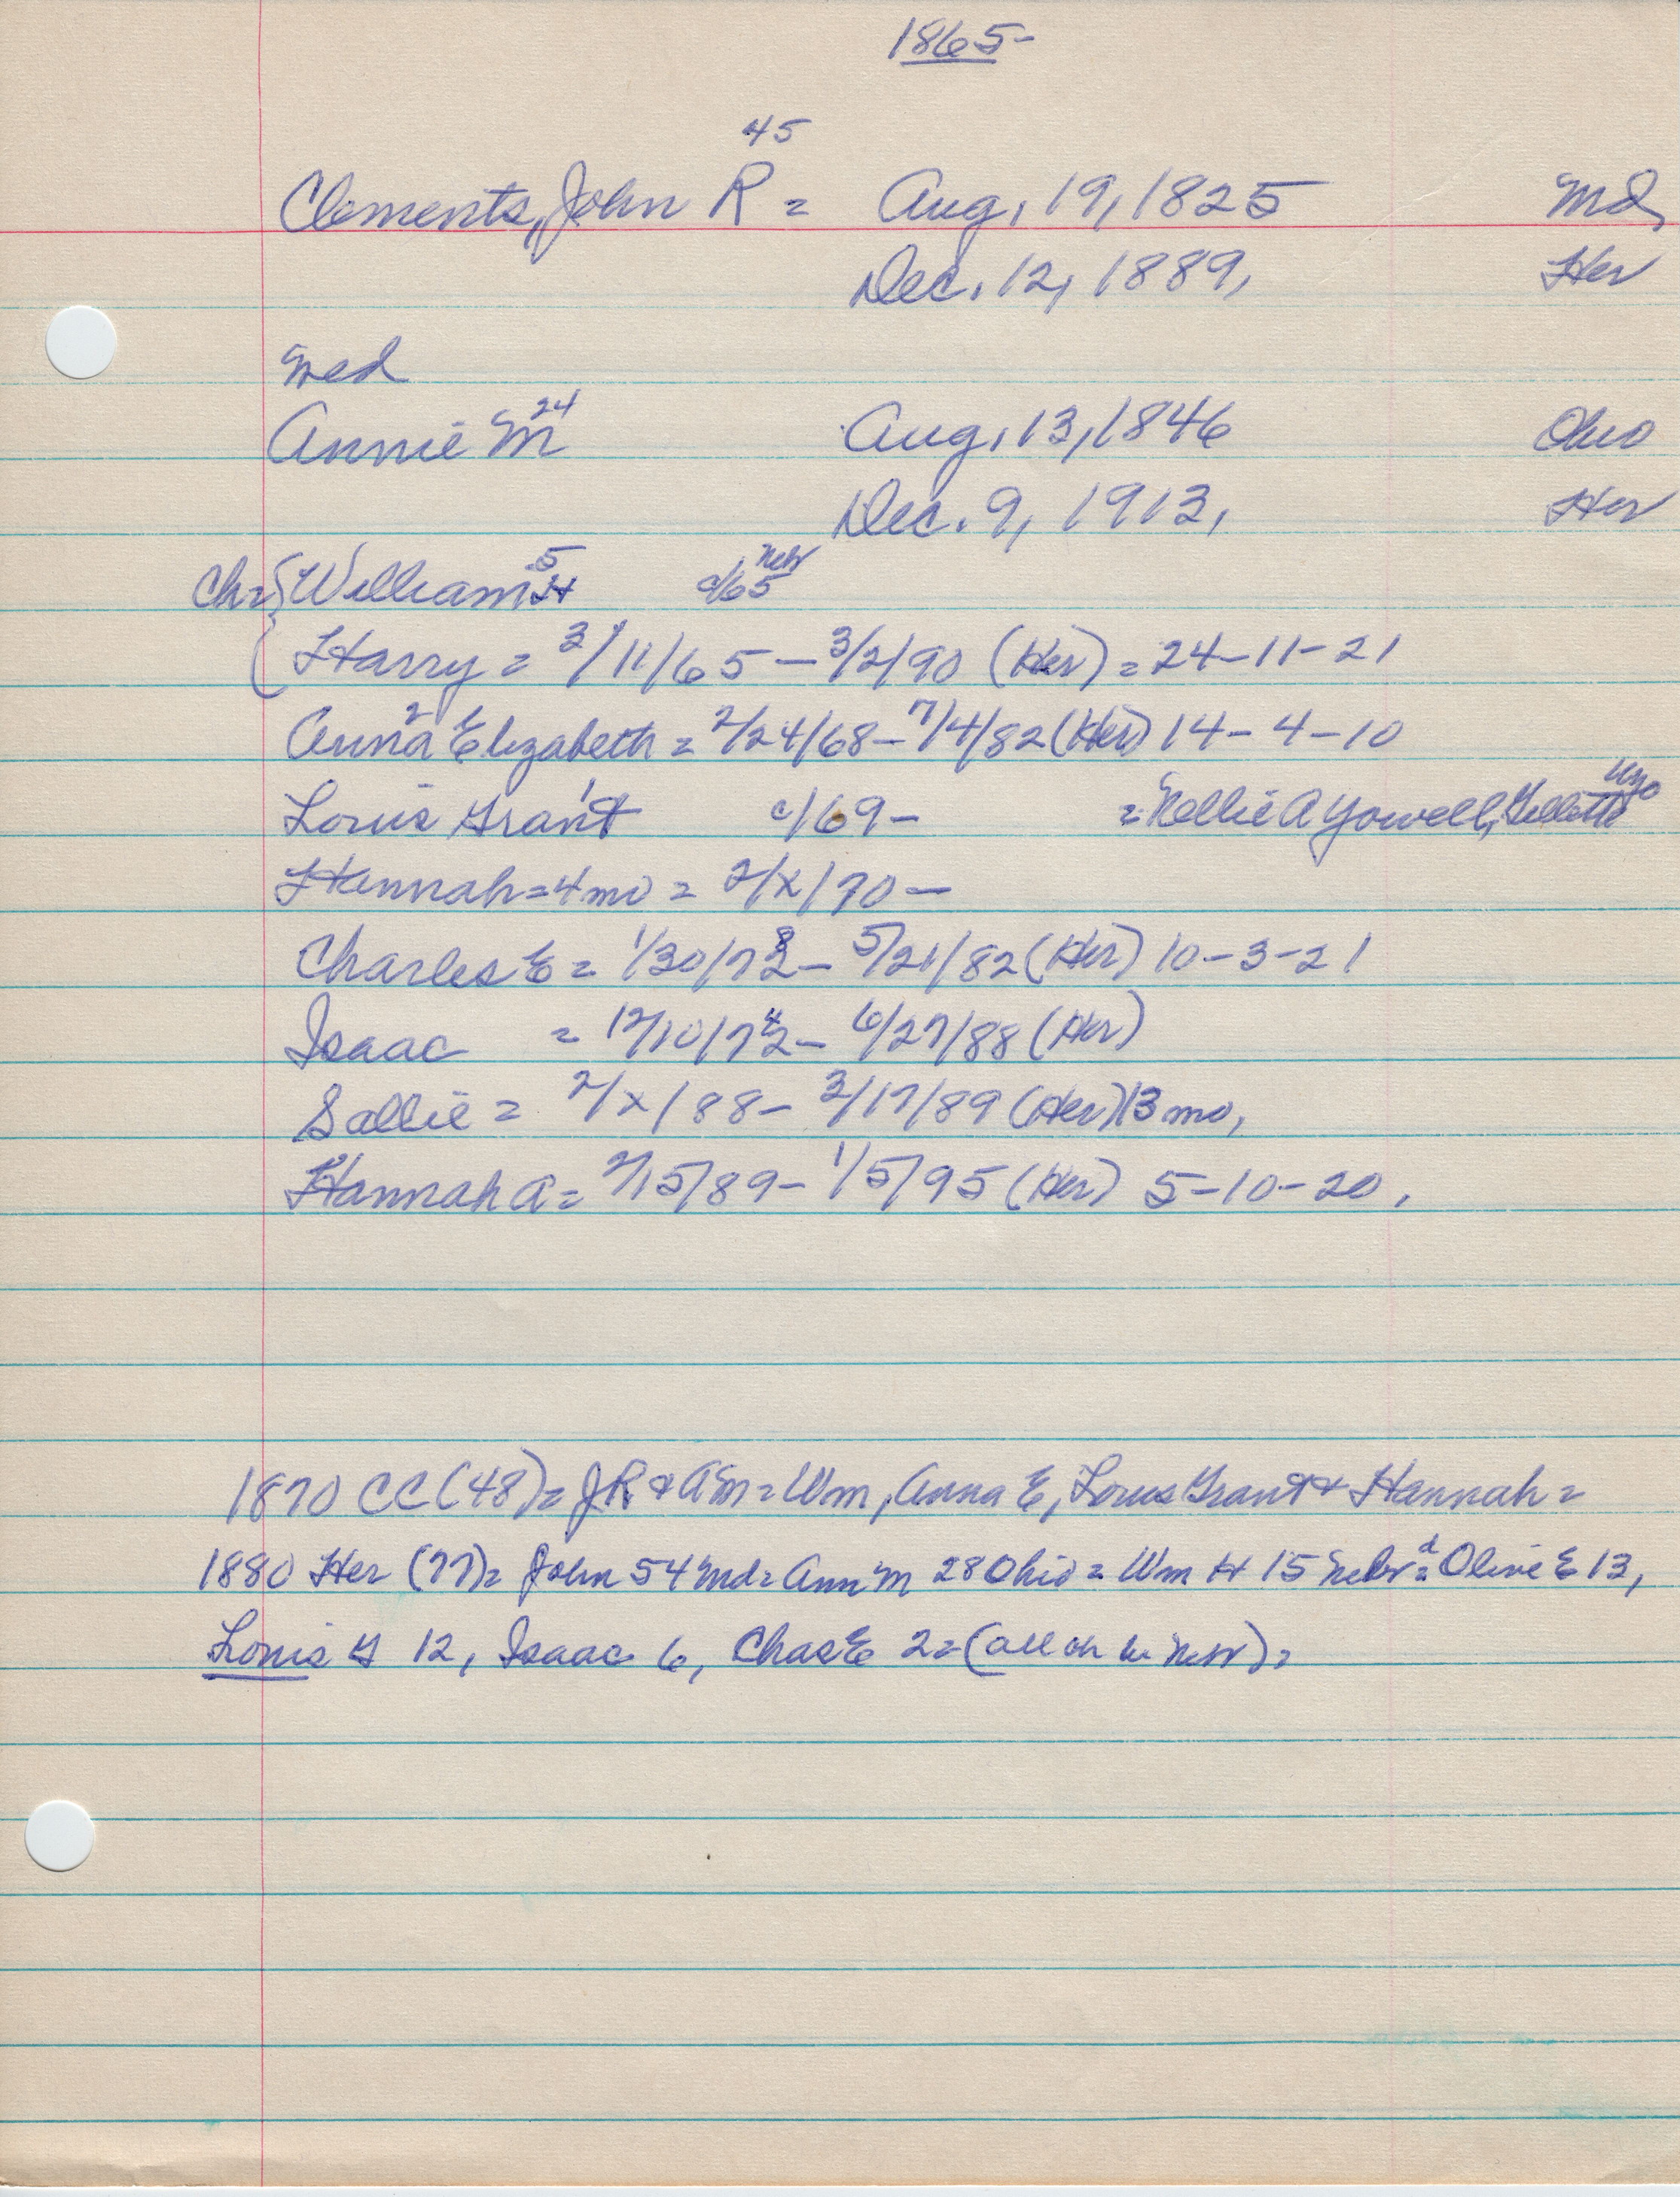 1865-
45
Clements, John R = Aug, 19, 1825 Md,
Dec. 12, 1889, Her
med
24
Annie M Aug, 13, 1846 Ohio
Dec. 9, 1913, Her
5 Nebr
Ch = William H c/65
Harry = 3/11/65 - 3/2/90 (Her) = 24-11-21
2
Anna Elizabeth = 2/24/68 - 7/4/82 (Her) 14-4-10
1 Wyo
Louis Grant c/69 - = Nellie A Yowell, Gillette
Hannah = 4 mo = 2/x/70 -
8
Charles E = 1/30/72 - 5/21/82 (Her) 10-3-21
4
Isaac = 12/10/72 - 6/27/88 (Her)
Sallie = 2/x/88 - 3/17/89 (Her) 13 mo,
Hannah A = 2/15/89 - 1/5/95 (Her) 5-10-20,
1870 CC (48) = JR & AM = Wm, Anna E, Louis Grant & Hannah =
1880 Her (77) = John 54 Md = Ann M 28 Ohio = Wm H 15 Nebr = Olive E 13,
Louis G 12, Isaac 6, Chas E 2 = (all ch in Nebr) =